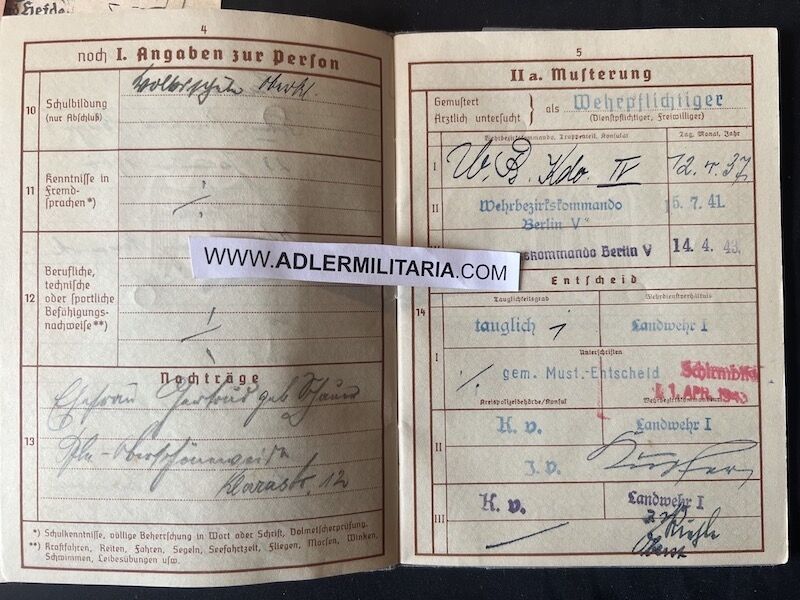 4
noch I. Angaben zur Person
10
Schulbildung
(nur Abschluß)
Volksschule
11
Kenntnisse in
Fremd-
sprachen*)
12
Berufliche,
technische
oder sportliche
Befähigungs-
nachweise**)
Nachträge
13
Ehefrau Gertrud geb Schauer
Bln-Oberschöneweide
Klarastr. 12
*) Schulkenntnisse, völlige Beherrschung in Wort oder Schrift, Dolmetscherprüfung.
**) Kraftfahren, Reiten, Fahren, Segeln, Seefahrtzeit, Fliegen, Morsen, Winken,
Schwimmen, Leibesübungen usw.
WWW.ADLERMILITARIA.COM
5
IIa. Musterung
Gemustert
Ärztlich untersucht
als Wehrpflichtiger
(Dienstpflichtiger, Freiwilliger)
Wehrbezirkskommando, Truppenteil, Konsulat
Tag, Monat, Jahr
I
W. B. Kdo. IV
12. 4. 37
II
Wehrbezirkskommando
Berlin V
5. 7. 41.
skommando Berlin V
14. 4. 43.
Entscheid
14
Tauglichkeitsgrad
Wehrdienstverhältnis
tauglich 1
Landwehr I
I
Unterschriften
gem. Must.-Entscheid
1 APR. 1940
Kreispolizeibehörde/Konsul
II
K. v.
Landwehr I
J. V.
III
K. v.
Landwehr I
Oberst